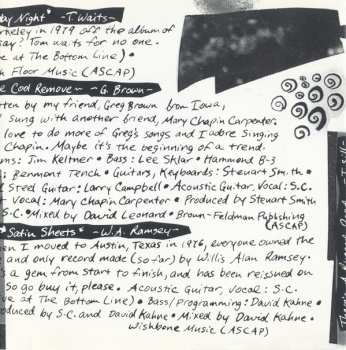 day Night" ~T. Waits~
rkeley in 1979 off the album of
say? Tom waits for no one.
ve at The Bottom Line) •
h Floor Music (ASCAP)
e Cool Remove ~ ~G. Brown~
tten by my friend, Greg Brown from Iowa,
I sung with another friend, Mary Chapin Carpenter.
love to do more of Greg's songs and I adore singing
Chapin. Maybe it's the beginning of a trend.
ums: Jim Keltner • Bass: Lee Sklar • Hammond B-3
: Benmont Tench • Guitars, Keyboards: Steuart Smith •
l Steel Guitar: Larry Campbell • Acoustic Guitar, Vocal: S.C.
t Vocal: Mary Chapin Carpenter • Produced by Steuart Smith
S.C. • Mixed by David Leonard • Brown-Feldman Publishing
(ASCAP)
"Satin Sheets" ~W.A. Ramsey~
en I moved to Austin, Texas in 1976, everyone owned the
and only record made (so far) by Willis Alan Ramsey.
s a gem from start to finish, and has been reissued on
so go buy it, please. Acoustic Guitar, Vocal: S.C.
ve at The Bottom Line) • Bass/Programming: David Kahne •
oduced by S.C. and David Kahne • Mixed by David Kahne •
Wishbone Music (ASCAP)